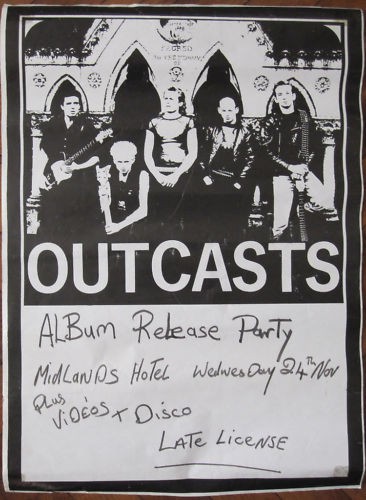 SACRED
OUTCASTS
ALBum Release Party
MiDLaNDS HoTeL WeDNesDay 24TH Nov
PLUS
ViDéOS + DISCO
LATE LICENSE